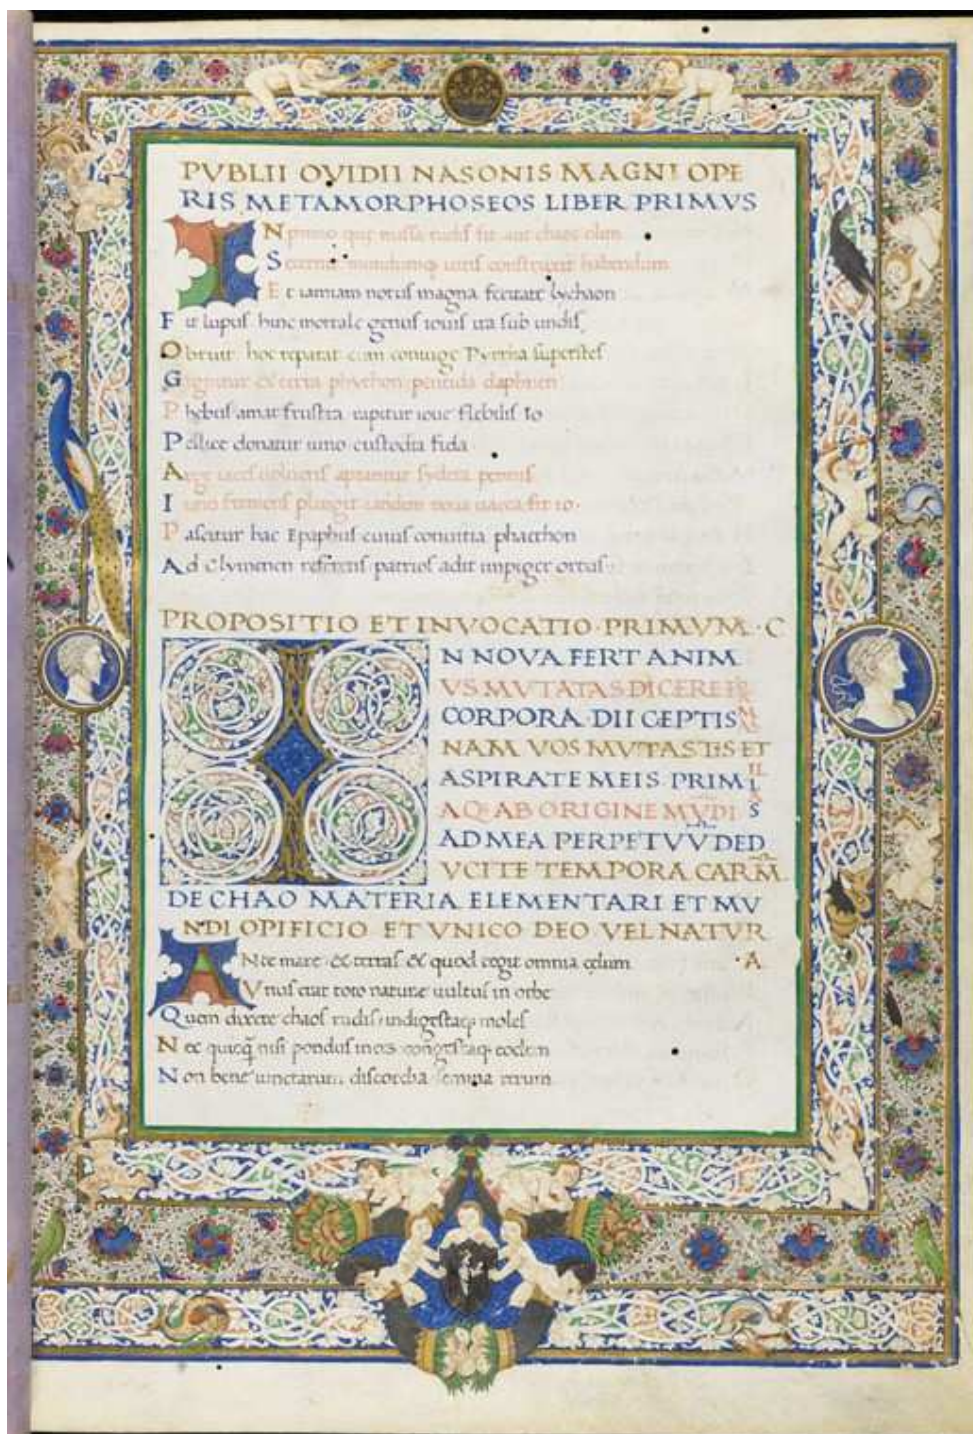 PVBLII OVIDII NASONIS MAGNI OPE
RIS METAMORPHOSEOS LIBER PRIMVS
IN primo que massa rudis sit aut chaos olim
S mundumq construxit habendum
Et iamiam notus magna feritate lychaon
Fit lupus hinc mortale genus iouis ira sub undis
Obruit hoc reparat cum coniuge Pyrrha superstes
Gignitur ex terra phython daphnen
Phebus amat frustra rapitur ioue flebilis Io
Pellice donatur iuno custodia fida
A aptantur sydera pennis
Iuno plangit tandem noua uacca fit io
Pascitur hac Epaphus cuius conuitia phaethon
Ad Clymenen referens patrios adit impiger ortus
PROPOSITIO ET INVOCATIO · PRIMVM · C
IN NOVA FERT ANIM
VS MVTATAS DICERE
CORPORA · DII CEPTIS
NAM VOS MVTASTIS ET
ASPIRATE MEIS · PRIM
AQ AB ORIGINE MVDI
AD MEA PERPETVV DED
VCITE TEMPORA CARM
DE CHAO MATERIA ELEMENTARI ET MV
NDI OPIFICIO ET VNICO DEO VEL NATVR
·A
ANte mare & terras & quod tegit omnia celum
Vnus erat toto nature uultus in orbe
Quem dixere chaos rudis indigestaq moles
Nec quicq nisi pondus iners congestaq eodem
Non bene iunctarum discordia semina rerum